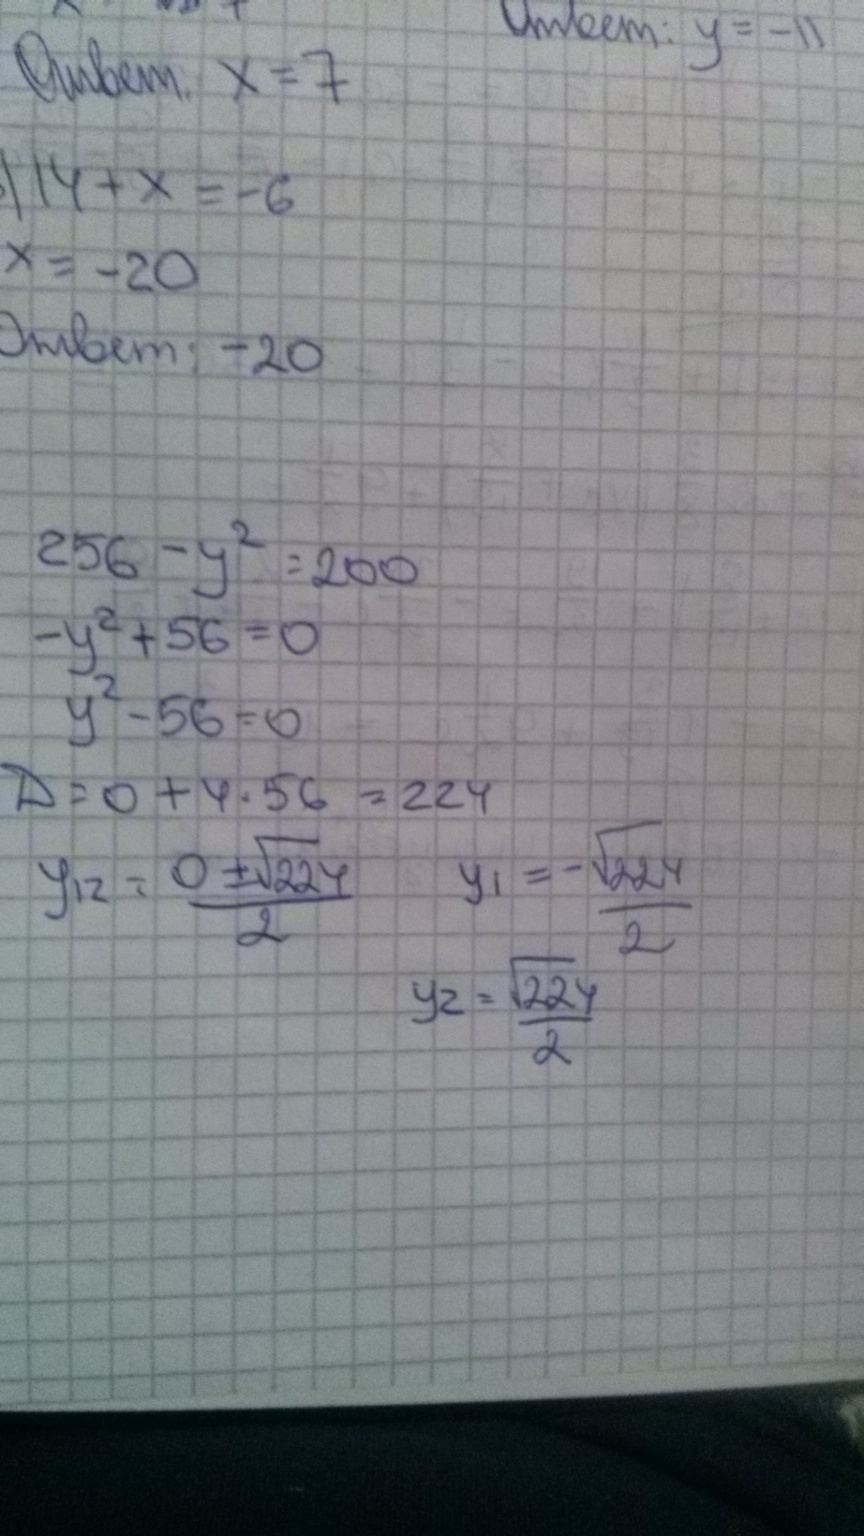 Ответ: y = -11
Ответ: x = 7
)14 + x = -6
x = -20
Ответ: -20
256 - y² = 200
-y² + 56 = 0
y² - 56 = 0
D = 0 + 4 · 56 = 224
y₁₂ = (0 ± √224)/2 y₁ = -√224/2
y₂ = √224/2